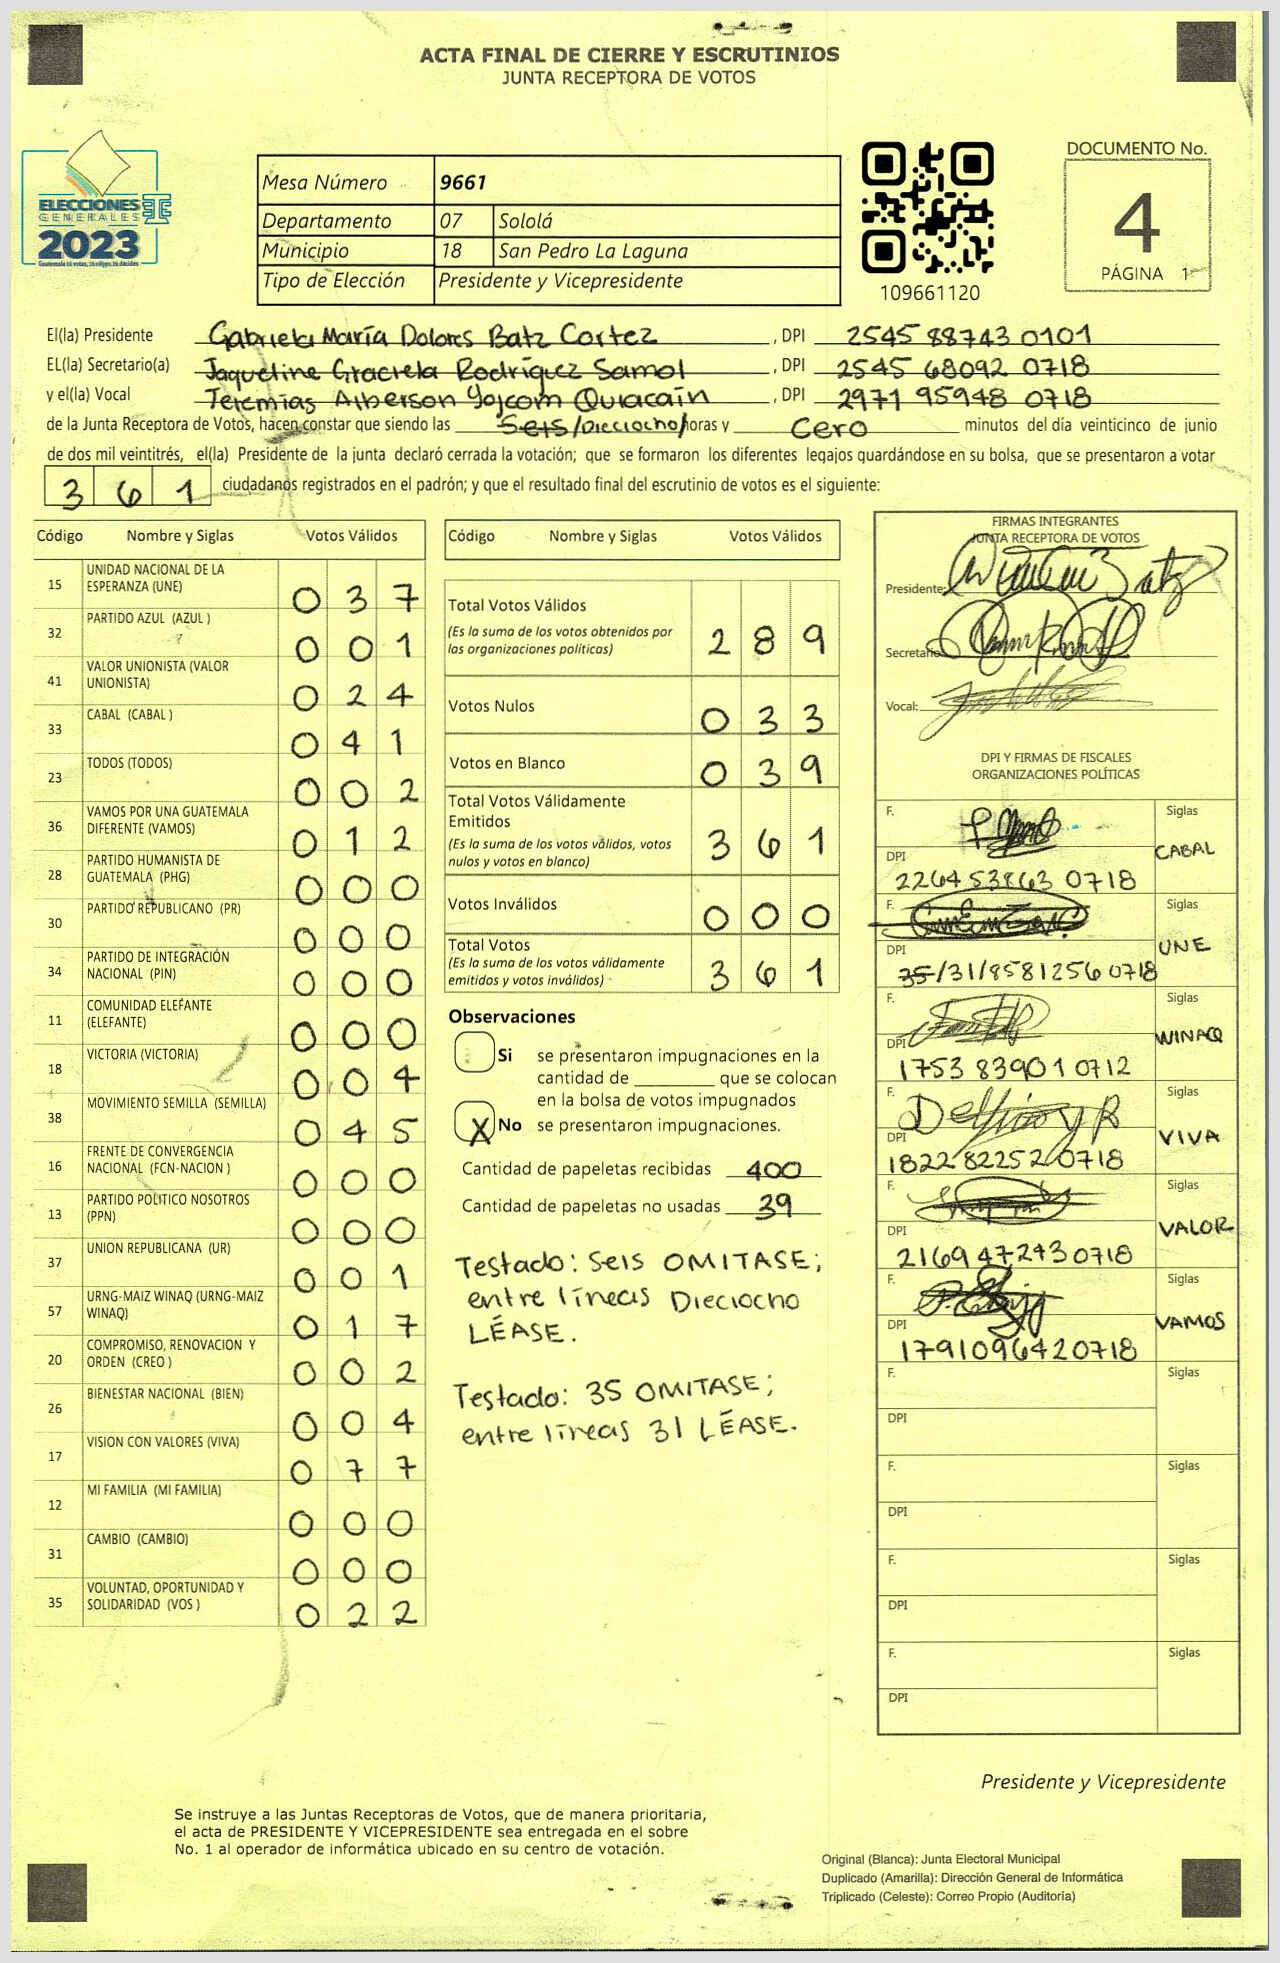 ACTA FINAL DE CIERRE Y ESCRUTINIOS
JUNTA RECEPTORA DE VOTOS
ELECCIONES
GENERALES
2023
Mesa Número 9661
Departamento 07 Sololá
Municipio 18 San Pedro La Laguna
Tipo de Elección Presidente y Vicepresidente
109661120
DOCUMENTO No.
4
PÁGINA 1
El(la) Presidente Gabriela María Dolores Batz Cortez , DPI 2545 88743 0101
EL(la) Secretario(a) Jaqueline Graciela Rodríguez Samol , DPI 2545 68092 0718
y el(la) Vocal Jeremias Alberson Yojcom Quiacaín , DPI 2971 95948 0718
de la Junta Receptora de Votos, hacen constar que siendo las Seis/Dieciocho/horas y Cero minutos del día veinticinco de junio
de dos mil veintitrés, el(la) Presidente de la junta declaró cerrada la votación; que se formaron los diferentes legajos guardándose en su bolsa, que se presentaron a votar
361 ciudadanos registrados en el padrón; y que el resultado final del escrutinio de votos es el siguiente:
Código Nombre y Siglas Votos Válidos
15 UNIDAD NACIONAL DE LA ESPERANZA (UNE) 037
32 PARTIDO AZUL (AZUL ) 001
41 VALOR UNIONISTA (VALOR UNIONISTA) 024
33 CABAL (CABAL ) 041
23 TODOS (TODOS) 002
36 VAMOS POR UNA GUATEMALA DIFERENTE (VAMOS) 012
28 PARTIDO HUMANISTA DE GUATEMALA (PHG) 000
30 PARTIDO REPUBLICANO (PR) 000
34 PARTIDO DE INTEGRACIÓN NACIONAL (PIN) 000
11 COMUNIDAD ELEFANTE (ELEFANTE) 000
18 VICTORIA (VICTORIA) 004
38 MOVIMIENTO SEMILLA (SEMILLA) 045
16 FRENTE DE CONVERGENCIA NACIONAL (FCN-NACION ) 000
13 PARTIDO POLITICO NOSOTROS (PPN) 000
37 UNION REPUBLICANA (UR) 001
57 URNG-MAIZ WINAQ (URNG-MAIZ WINAQ) 017
20 COMPROMISO, RENOVACION Y ORDEN (CREO ) 002
26 BIENESTAR NACIONAL (BIEN) 004
17 VISION CON VALORES (VIVA) 077
12 MI FAMILIA (MI FAMILIA) 000
31 CAMBIO (CAMBIO) 000
35 VOLUNTAD, OPORTUNIDAD Y SOLIDARIDAD (VOS ) 022
Código Nombre y Siglas Votos Válidos
Total Votos Válidos 289
(Es la suma de los votos obtenidos por
las organizaciones políticas)
Votos Nulos 033
Votos en Blanco 039
Total Votos Válidamente
Emitidos 361
(Es la suma de los votos válidos, votos
nulos y votos en blanco)
Votos Inválidos 000
Total Votos 361
(Es la suma de los votos válidamente
emitidos y votos inválidos)
Observaciones
Si se presentaron impugnaciones en la
cantidad de ________ que se colocan
en la bolsa de votos impugnados
X No se presentaron impugnaciones.
Cantidad de papeletas recibidas 400
Cantidad de papeletas no usadas 39
Testado: Seis OMITASE;
entre líneas Dieciocho
LÉASE.
Testado: 35 OMITASE;
entre líneas 31 LÉASE.
FIRMAS INTEGRANTES
JUNTA RECEPTORA DE VOTOS
Presidente:
Secretario
Vocal:
DPI Y FIRMAS DE FISCALES
ORGANIZACIONES POLÍTICAS
F. Siglas
DPI CABAL
2264 53863 0718
F. Siglas
DPI UNE
35/31/95812560718
F. Siglas
DPI WINAQ
1753 83901 0712
F. Siglas
DPI VIVA
1822 82252 0718
F. Siglas
DPI VALOR
2169 47243 0718
F. Siglas
DPI VAMOS
1791096420718
F. Siglas
DPI
F. Siglas
DPI
F. Siglas
DPI
F. Siglas
DPI
Presidente y Vicepresidente
Se instruye a las Juntas Receptoras de Votos, que de manera prioritaria,
el acta de PRESIDENTE Y VICEPRESIDENTE sea entregada en el sobre
No. 1 al operador de informática ubicado en su centro de votación.
Original (Blanca): Junta Electoral Municipal
Duplicado (Amarilla): Dirección General de Informática
Triplicado (Celeste): Correo Propio (Auditoría)